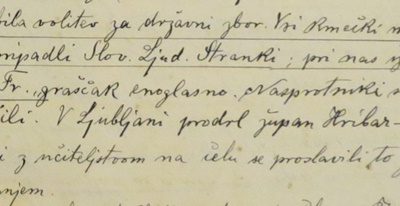 bila volitev za državni zbor. Vsi kmečki m
pripadli Slov. Ljud. Stranki; pri nas iz
Fr. graščak enoglasno. Nasprotniki s
ili. V Ljubljani prodrl župan Hribar-
i z učiteljstvom na čelu se proslavili to z
anjem.